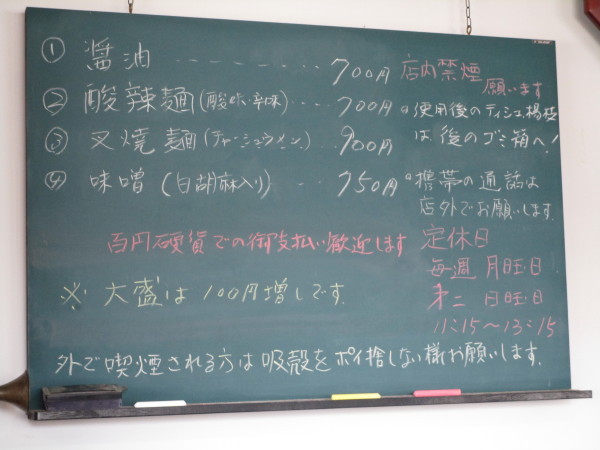 ① 醤油 ‐‐‐‐‐‐‐‐ 700円
② 酸辣麺(酸味、辛味)‥‥ 700円
③ 叉焼麺(チャーシューメン)‥‥ 900円
④ 味噌(白胡麻入り)‥‥ 750円
百円硬貨での御支払い歓迎します
※ 大盛は100円増しです.
店内禁煙
願います
◦使用後のティシュ楊枝
は後のゴミ箱へ!
◦携帯の通話は
店外でお願いします.
定休日
毎週 月旺日
第二 日旺日
11:15〜13:15
外で喫煙される方は吸殻をポイ捨しない様お願いします.